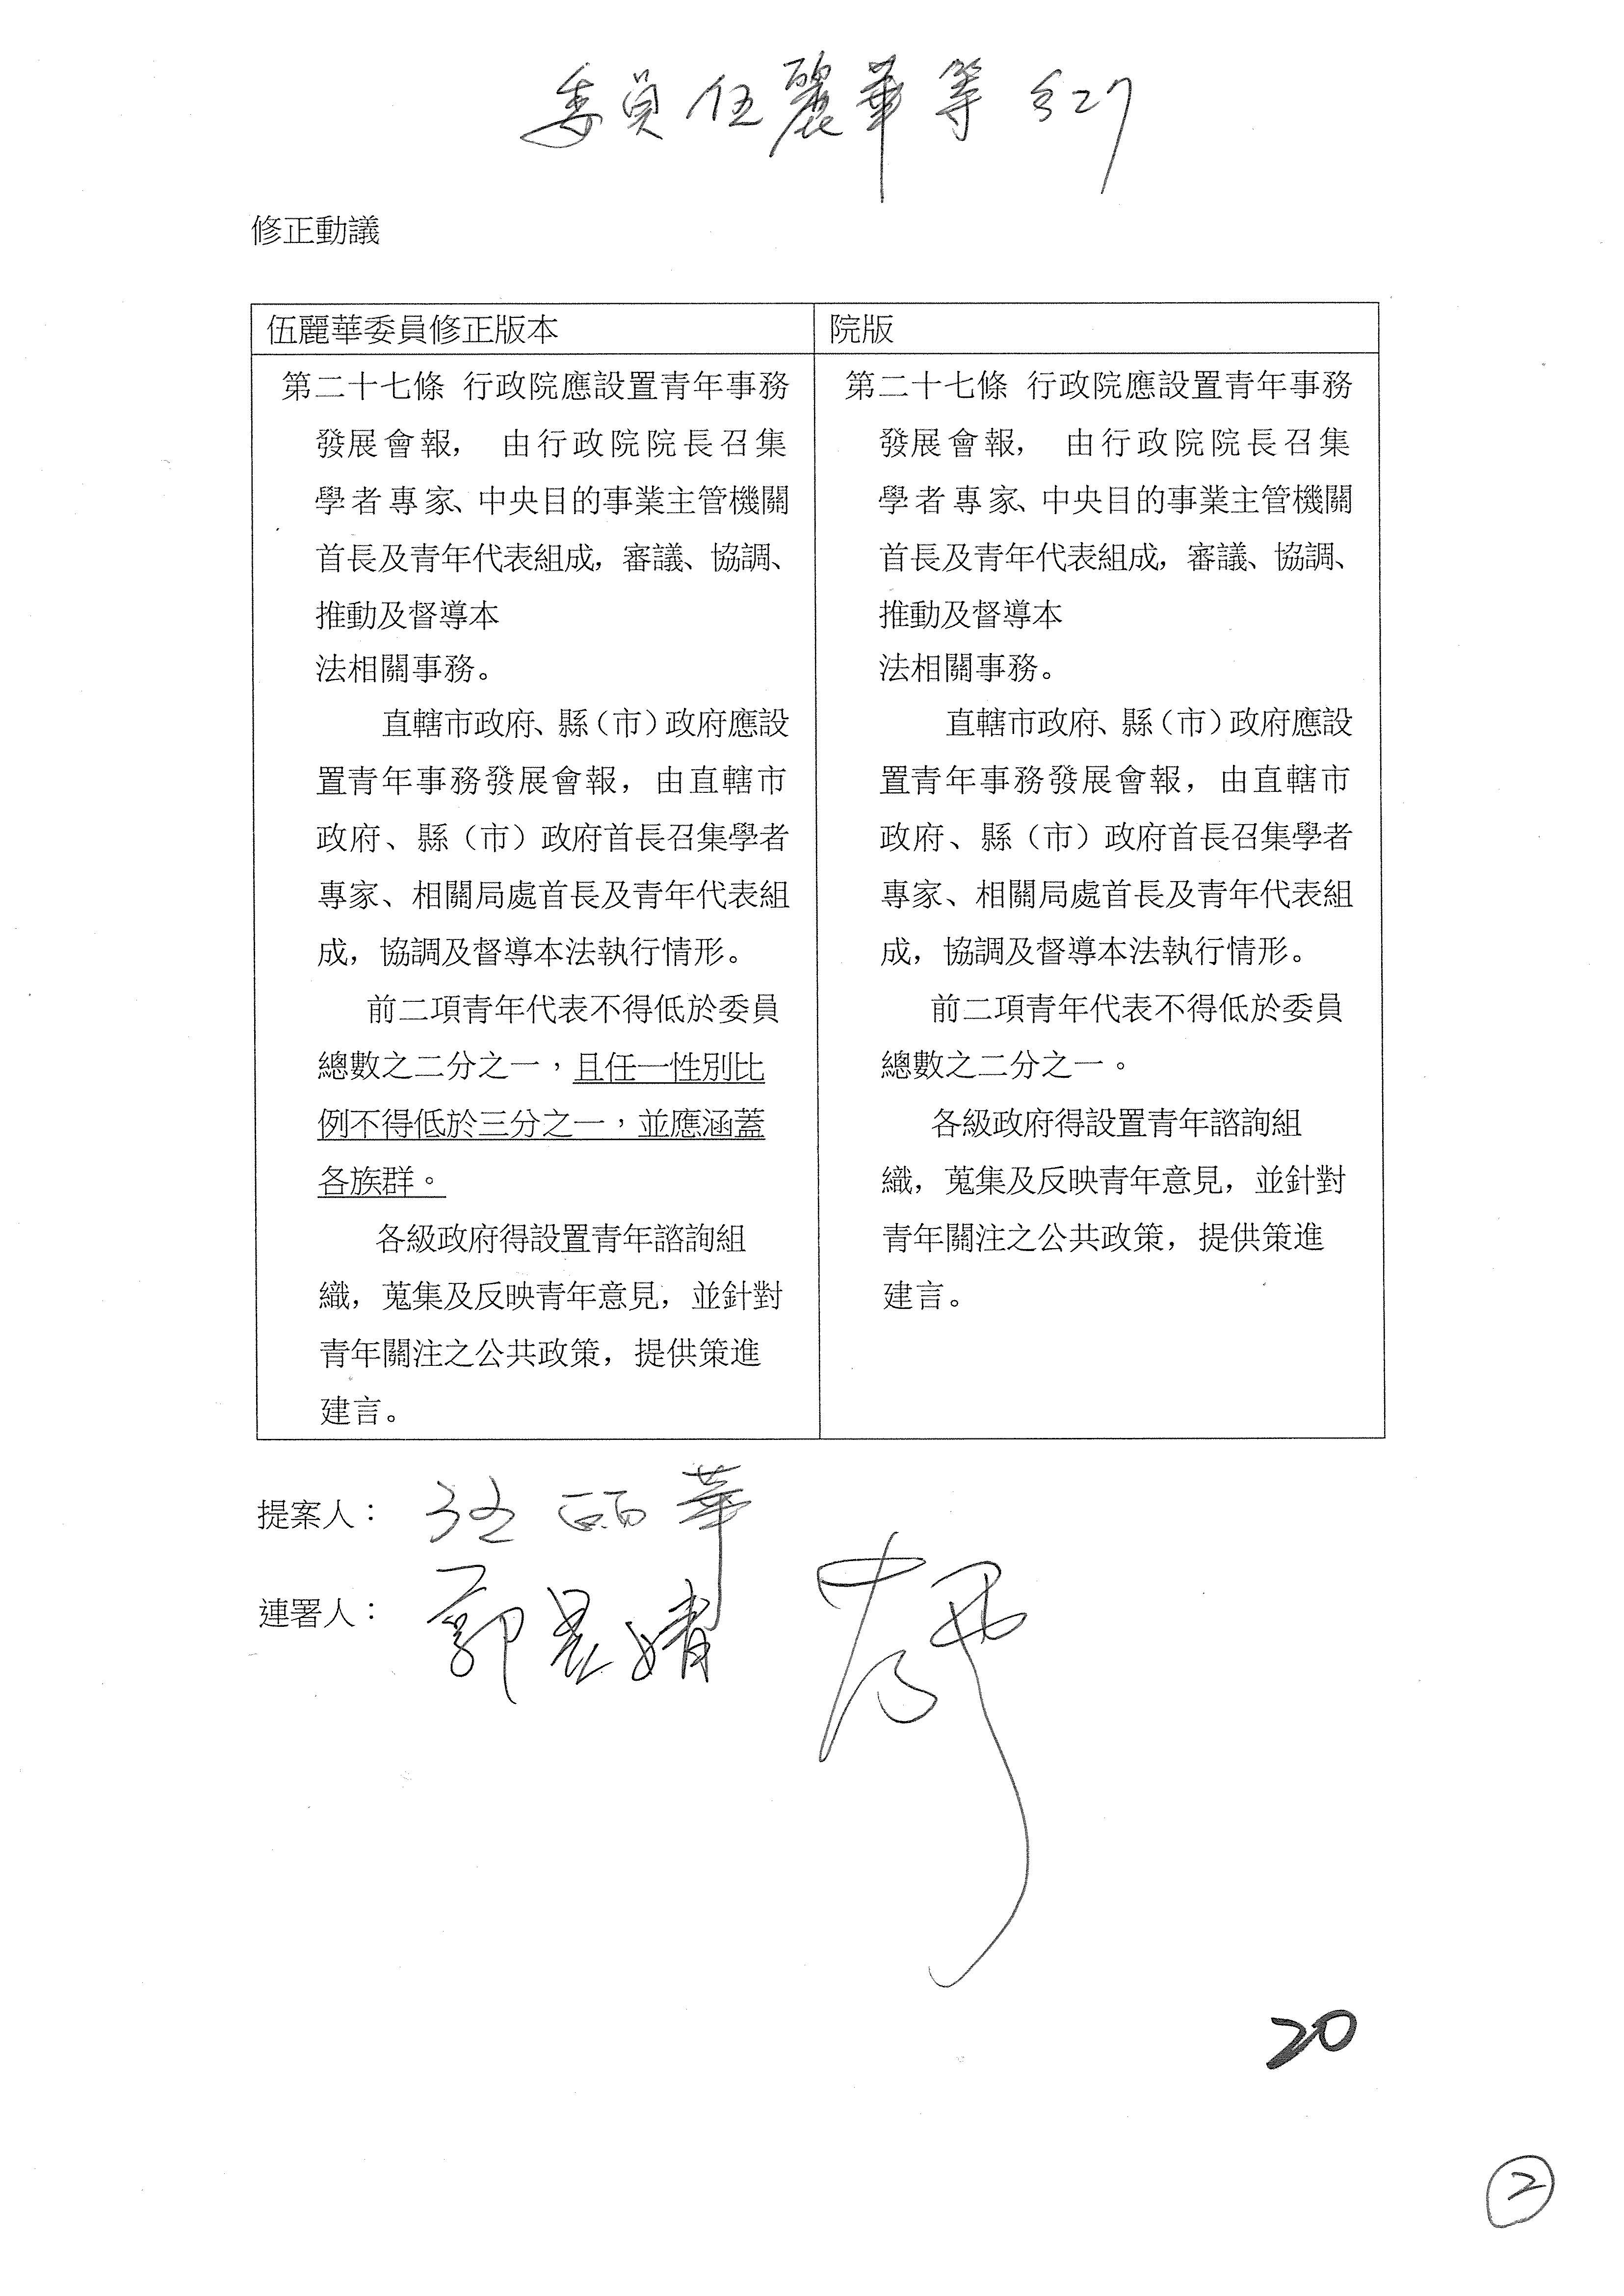 委員伍麗華等 §27
修正動議
伍麗華委員修正版本
第二十七條 行政院應設置青年事務
發展會報， 由行政院院長召集
學者專家、中央目的事業主管機關
首長及青年代表組成，審議、協調、
推動及督導本
法相關事務。
直轄市政府、縣（市）政府應設
置青年事務發展會報，由直轄市
政府、縣（市）政府首長召集學者
專家、相關局處首長及青年代表組
成，協調及督導本法執行情形。
前二項青年代表不得低於委員
總數之二分之一，且任一性別比
例不得低於三分之一，並應涵蓋
各族群。
各級政府得設置青年諮詢組
織，蒐集及反映青年意見，並針對
青年關注之公共政策，提供策進
建言。
院版
第二十七條 行政院應設置青年事務
發展會報， 由行政院院長召集
學者專家、中央目的事業主管機關
首長及青年代表組成，審議、協調、
推動及督導本
法相關事務。
直轄市政府、縣（市）政府應設
置青年事務發展會報，由直轄市
政府、縣（市）政府首長召集學者
專家、相關局處首長及青年代表組
成，協調及督導本法執行情形。
前二項青年代表不得低於委員
總數之二分之一。
各級政府得設置青年諮詢組
織，蒐集及反映青年意見，並針對
青年關注之公共政策，提供策進
建言。
提案人： 伍麗華
連署人： 郭昱晴
20
2